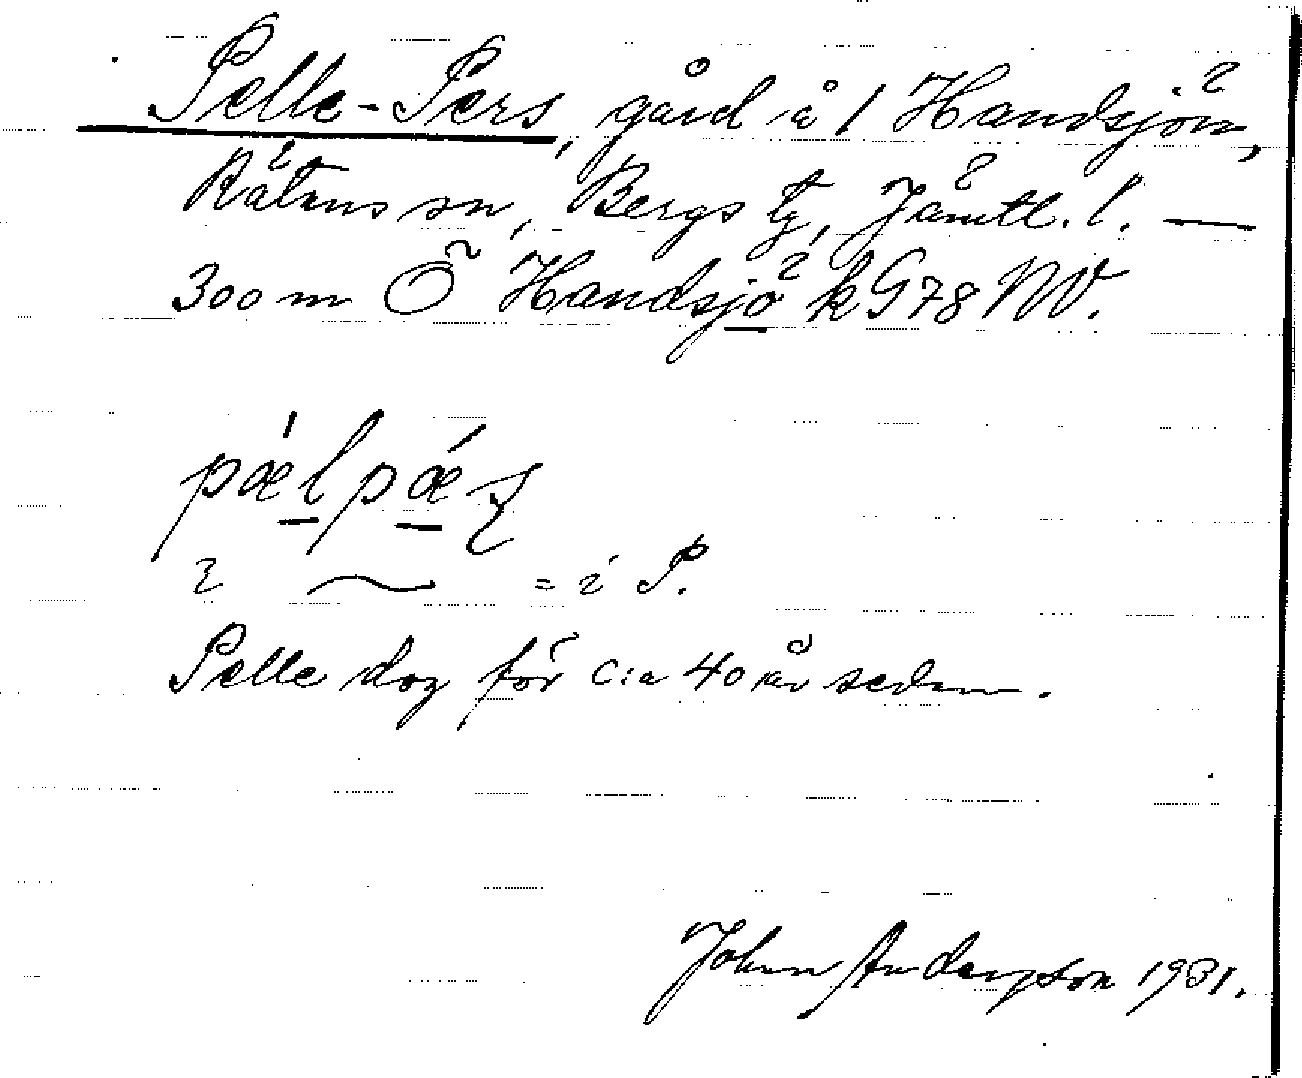 Pelle-Pers, gård å 1 Handsjön,
Rätans sn, Bergs tg, Jämtl. l. —
300 m Ö Handsjö k G78 NV.
pǽlpǽ
i ~ = i P.
Pelle dog för c:a 40 år sedan.
John Andersson 1931.